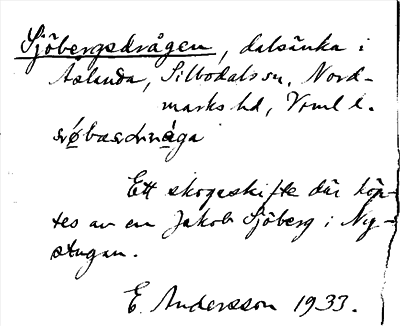 Sjöbergsdrågen, dalsänka i
Åslanda, Silbodals sn, Nord-
marks hd, Vrml l.
Ett skogsskifte där köp-
tes av en Jakob Sjöberg i Ny-
stugan.
E. Andersson 1933.